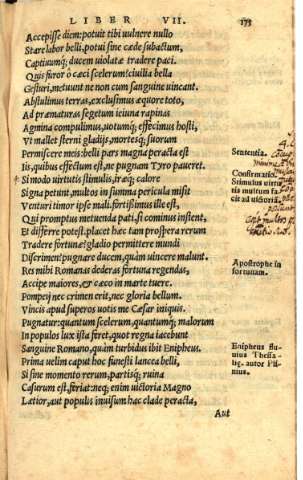 LIBER VII. 173
Accepisse diem: potuit tibi vulnere nullo
Stare labor belli, potui sine cæde subactum,
Captiuumq; ducem uiolatæ tradere paci.
Quis furor ô cæci scelerum? ciuilia bella
Gesturi, metuunt ne non cum sanguine uincant.
Abstulimus terras, exclusimus æquore toto,
Ad præmaturas segetum ieiuna rapinas
Agmina compulimus, uotumq; effecimus hosti,
Vt mallet sterni gladijs, mortesq; suorum
Permiscere meis: belli pars magna peracta est
Iis, quibus effectum est, ne pugnam Tyro paueret.
Si modo uirtutis stimulis, iræq; calore
Signa petunt, multos in summa pericula misit
Venturi timor ipse mali. fortissimus ille est,
Qui promptus metuenda pati, si cominus instent,
Et differre potest. placet hæc tam prospera rerum
Tradere fortunæ? gladio permittere mundi
Discrimen? pugnare ducem, quàm uincere malunt.
Res mihi Romanas dederas fortuna regendas,
Accipe maiores, & cæco in marte tuere.
Pompeij nec crimen erit, nec gloria bellum.
Vincis apud superos uotis me Cæsar iniquis.
Pugnatur: quantum scelerum, quantumq; malorum
In populos lux ista feret, quot regna iacebunt
Sanguine Romano, quàm turbidus ibit Enipheus.
Prima uelim caput hoc funesti lancea belli,
Si sine momento rerum, partisq; ruina
Casurum est, feriat: neq; enim uictoria Magno
Lætior, aut populis inuisum hac clade peracta,
Aut
Sententia.
Confirmatio.
Stimulus uirtu-
tis multum fa-
cit ad uictoriā.
Apostrophe ad
fortunam.
Enipheus flu-
uius Thessa-
liæ, autor Pli-
nius.